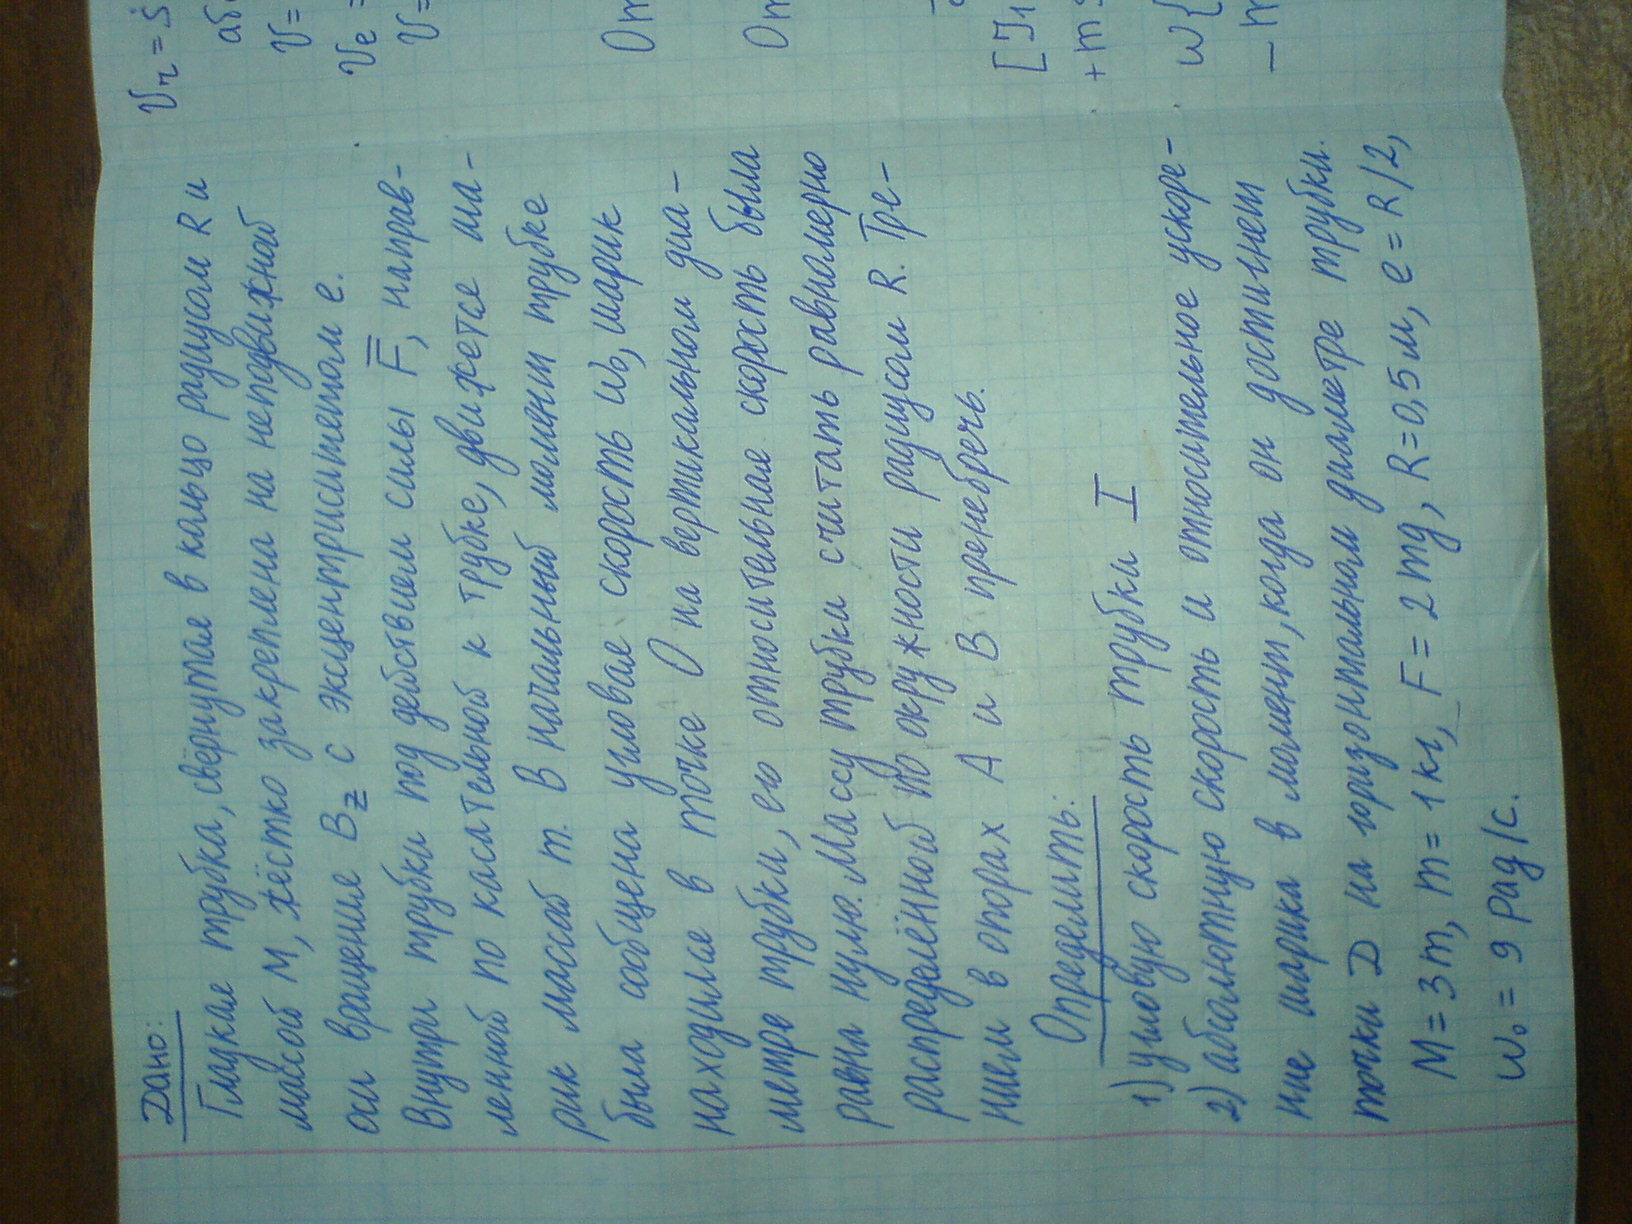 Дано:
Гладкая трубка, свёрнутая в кольцо радиусом R и
массой M, жёстко закреплена на неподвижной
оси вращения Bz с эксцентриситетом e.
Внутри трубки под действием силы F, направ-
ленной по касательной к трубке, движется ша-
рик массой m. В начальный момент трубке
была сообщена угловая скорость ω₀, шарик
находился в точке O на вертикальном диа-
метре трубки, его относительная скорость была
равна нулю. Массу трубки считать равномерно
распределённой по окружности радиусом R. Тре-
нием в опорах A и B пренебречь.
Определить:
1) угловую скорость трубки I
2) абсолютную скорость и относительное ускоре-
ние шарика в момент, когда он достигнет
точки D на горизонтальном диаметре трубки.
M = 3m, m = 1 кг, F = 2mg, R = 0,5 м, e = R/2,
ω₀ = 9 рад/с.
Vr = Ṡ
V =
Ve =
V =
+ m
ω{
— m